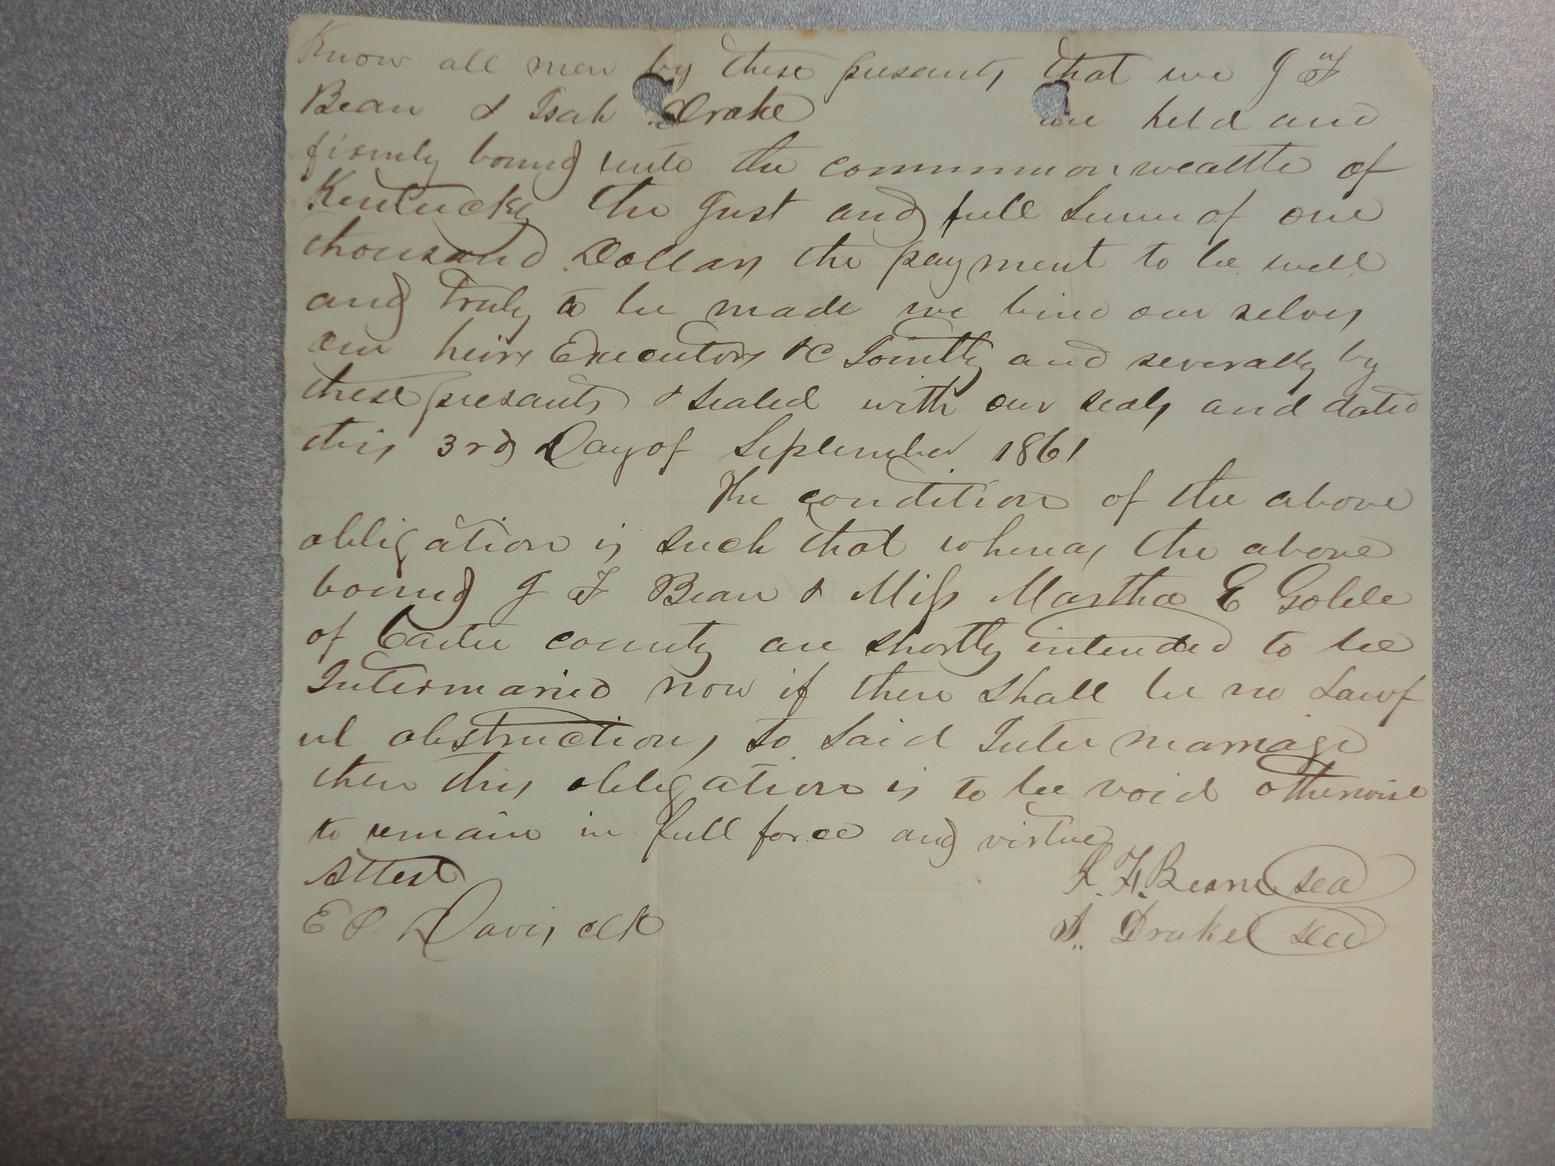 Know all men by these presants that we J F
Bean & Isah Drake are held and
firmly bound unto the commmonwealth of
Kentucky the Just and full Sum of one
thousand Dollars the payment to be well
and Truly to be made we bind our selves
our heirs Executors &C Jointly and severally by
these presants & sealed with our seals and dated
this 3rd Day of September 1861
The condition of the above
obligation is such that whereas the above
bound J F Bean & Miss Martha E Goble
of Carter county are shortly intended to be
Intermaried now if there shall be no Lawf
ul obstructions to said Inter marriage
then this obligation is to be void otherwise
to remain in full force and virtue
Attest J. F. Bean sea
E P Davis clk I. Drake sea